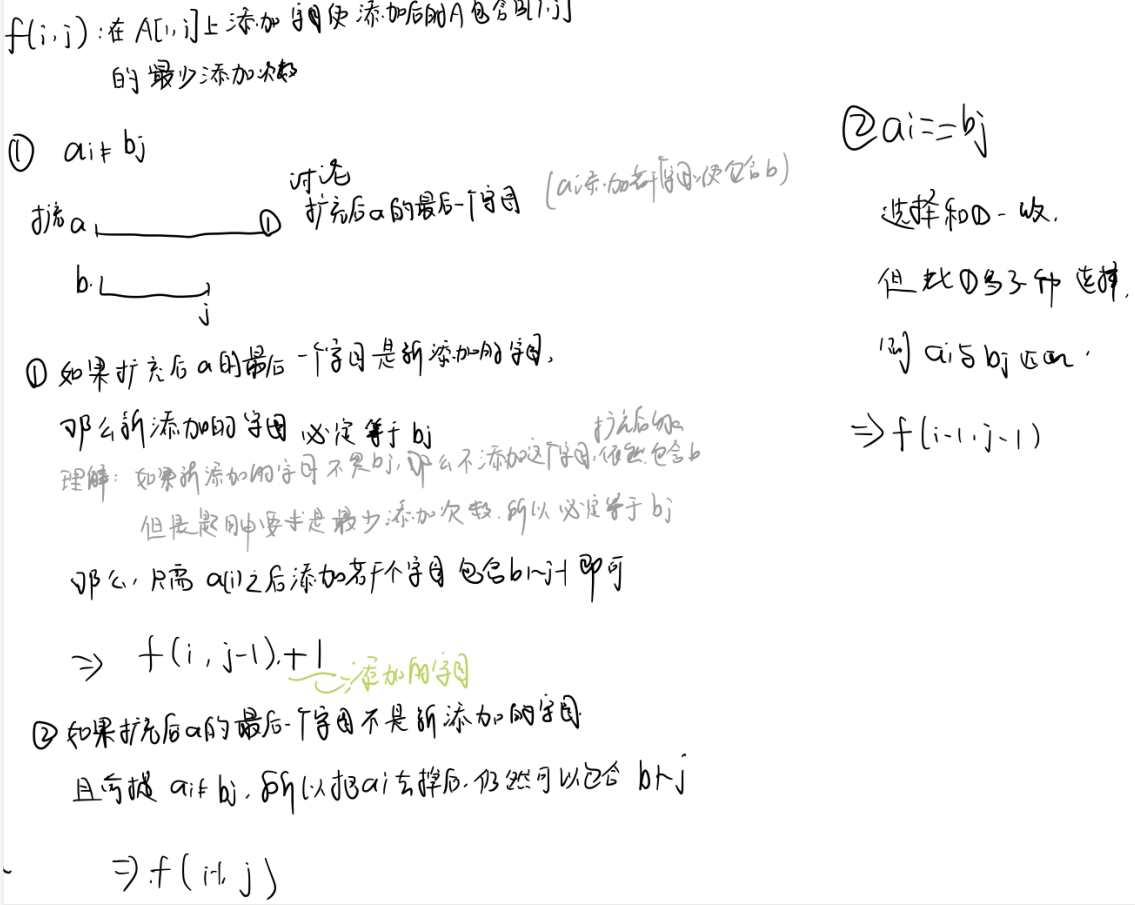 f(i,j):在A[1,i]上添加字母使添加后的A包含B[1,j]
的最少添加次数
① ai≠bj
讨论
扩充后a的最后一个字母 (ai添加若干字母,使包含b)
扩充a ①
b
j
① 如果扩充后a的最后一个字母是新添加的字母,
那么新添加的字母必定等于bj
扩充后的a
理解:如果新添加的字母不是bj,那么不添加这个字母,依然包含b
但是题目中要求是最少添加次数.所以必定等于bj
那么,只需a(i)之后添加若干个字母包含b1~j-1即可
⇒ f(i,j-1)+1
添加的字母
② 如果扩充后a的最后一个字母不是新添加的字母
且前提ai≠bj,所以把ai去掉后,仍然可以包含b1~j
⇒ f(i-1,j)
②ai==bj
选择和①一致.
但比①多了一种选择,
即ai与bj
⇒ f(i-1,j-1)